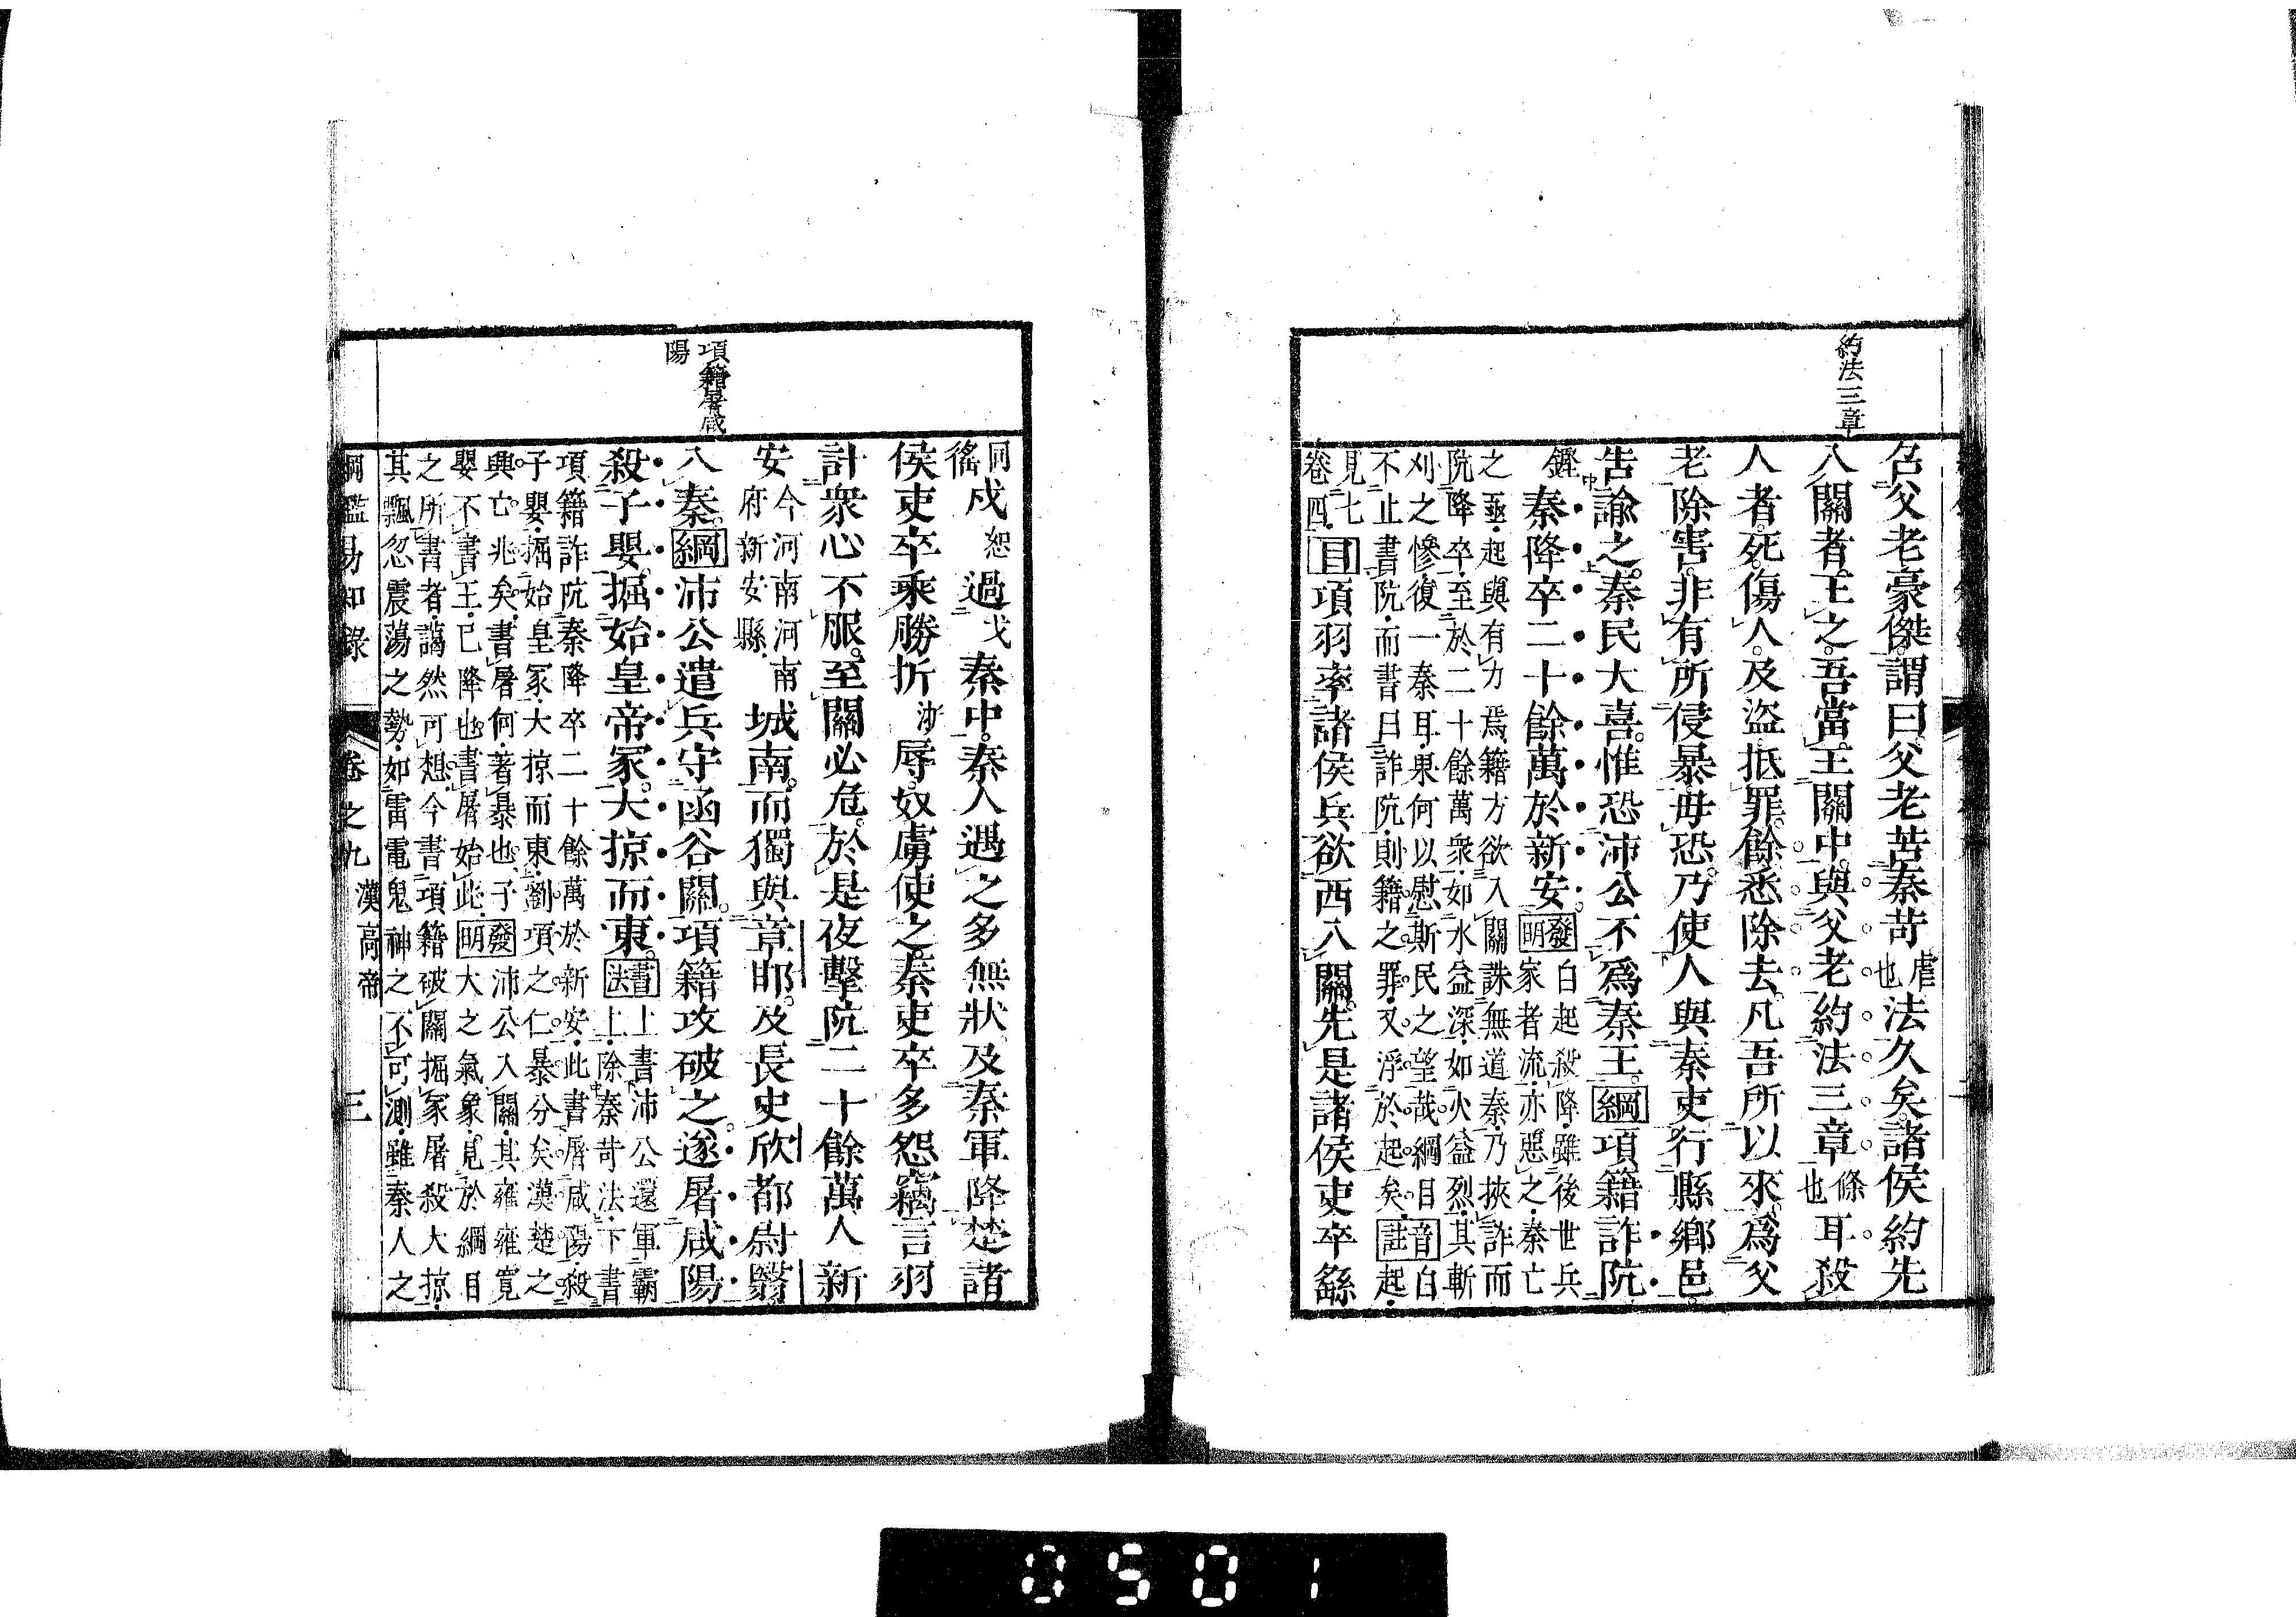 約法三章
召父老豪傑謂曰父老苦秦苛虐也法久矣諸侯約先
入關者王之吾當王關中與父老約法三章條也耳殺
人者死傷人及盜抵罪餘悉除去凡吾所以來爲父
老除害非有所侵暴毋恐乃使人與秦吏行縣鄉邑
告諭之秦民大喜惟恐沛公不爲秦王綱項籍詐阬
鏗秦降卒二十餘萬於新安發明
白起殺降雖後世兵
家者流亦惡之秦亡
之亟起與有力焉籍方欲入關誅無道秦乃挾詐而
阬降卒至於二十餘萬衆如水益深如火益烈其斬
刈之慘復一秦耳果何以慰斯民之望哉綱目
不止書阬而書曰詐阬則籍之罪又浮於起矣音註白起
見七
卷四
目項羽率諸侯兵欲西入關先是諸侯吏卒繇
同
徭
戍恕過戈秦中秦人遇之多無狀及秦軍降楚諸
侯吏卒乘勝折浙辱奴虜使之秦吏卒多怨竊言羽
計衆心不服至關必危於是夜擊阬二十餘萬人新
安今河南河南府新安縣城南而獨與章邯及長史欣都尉翳
項籍屠咸
陽
入秦綱沛公遣兵守函谷關項籍攻破之遂屠咸陽
殺子嬰掘始皇帝冢大掠而東書法
上書沛公還軍霸
上除秦苛法下書
項籍詐阬秦降卒二十餘萬於新安此書屠咸陽殺
子嬰掘始皇冢大掠而東劉項之仁暴分矣漢楚之
興亡兆矣書屠何著暴也子
嬰不書王已降也書屠始此
發明
沛公入關其雍雍寬
大之氣象見於綱目
之所書者藹然可想今書項籍破關掘冢屠殺大掠
其飄忽震蕩之勢如雷電鬼神之不可測雖秦人之
綱鑑易知錄 卷之九 漢高帝 三